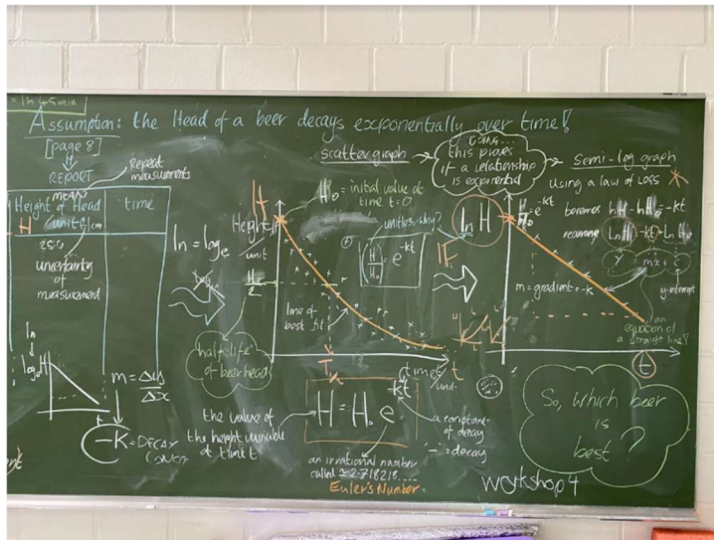 = 1h 45min
Assumption: the Head of a beer decays exponentially over time!
[page 8]
REPORT
repeat
measurements
mean
Height of Head
unit/cm
time
H
25.0
uncertainty
of
measurement
ln
log_e H
t
m = Δy
Δx
-k = DECAY
ln = log_e
scattergraph
H₀ = initial value at
time t=0
Height/
unit
H
H₀
2
unitless - why?
(H/H₀) = e^-kt
line of
best fit
half-life
of beer head
T½
(time)
unit
t
H = H₀ e^-kt
the value of
the height variable
at time t
a constant
of decay
- = decay
an irrational number
called ≈ 2.718218...
Euler's Number
DOING...
this proves
if a relationship
is exponential
IF
Semi-log graph
using a law of LOGS
H/H₀ = e^-kt
becomes lnH - lnH₀ = -kt
rearrange lnH = -kt + lnH₀
y = mx + c
ln H
m = gradient = -k
y-intercept
an
equation of
a straight line!
t
So, which beer
is
best?
workshop 4